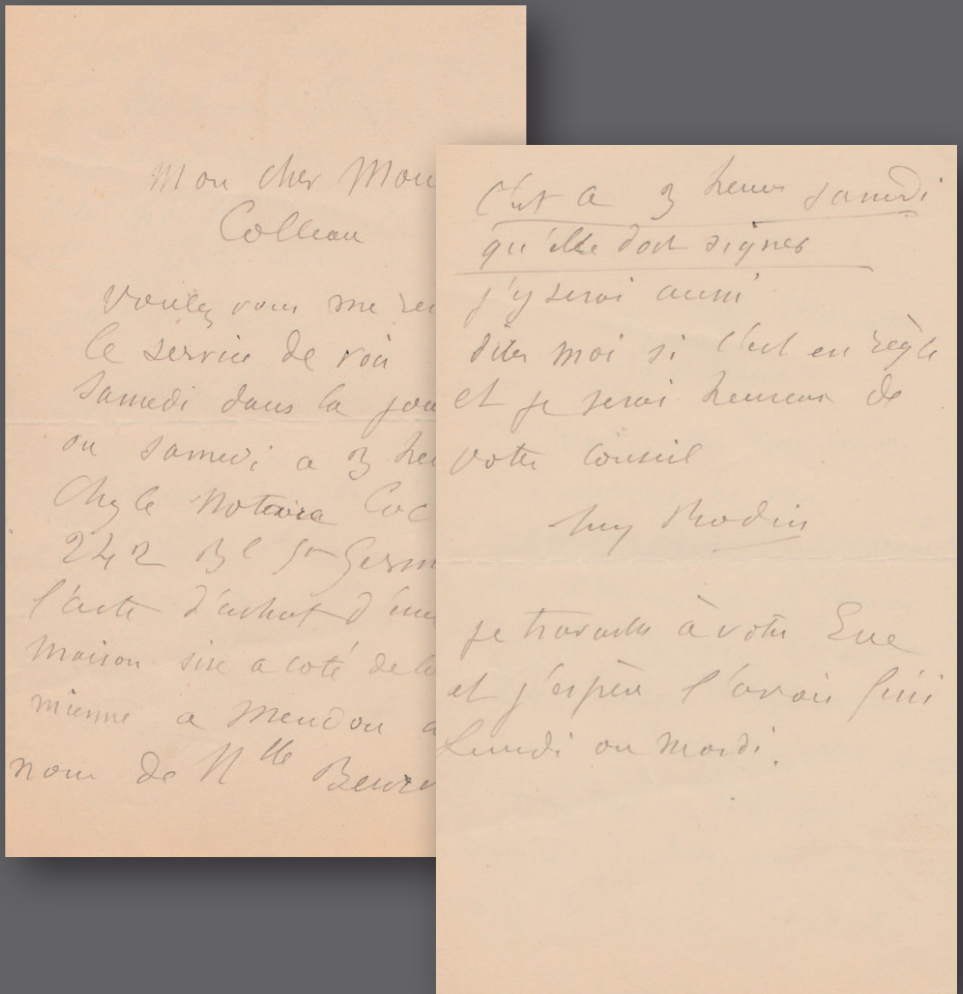 Mon cher Mon
Colleau
Voulez vous me ren
le service de voir
Samedi dans la jou
ou samedi a 3 heu
Chez le Notaire Coc
242 Bl St Germ
l'acte d'achat d'une
maison sise a coté de la
mienne a Meudon a
nom de Mlle Beure
c'est a 3 heures samedi
qu'elle doit signer
j'y serai aussi
dites moi si c'est en règle
et je serai heureux de
votre conseil
Rodin
je travaille à votre Eve
et j'espère l'avoir fini
Lundi ou Mardi.